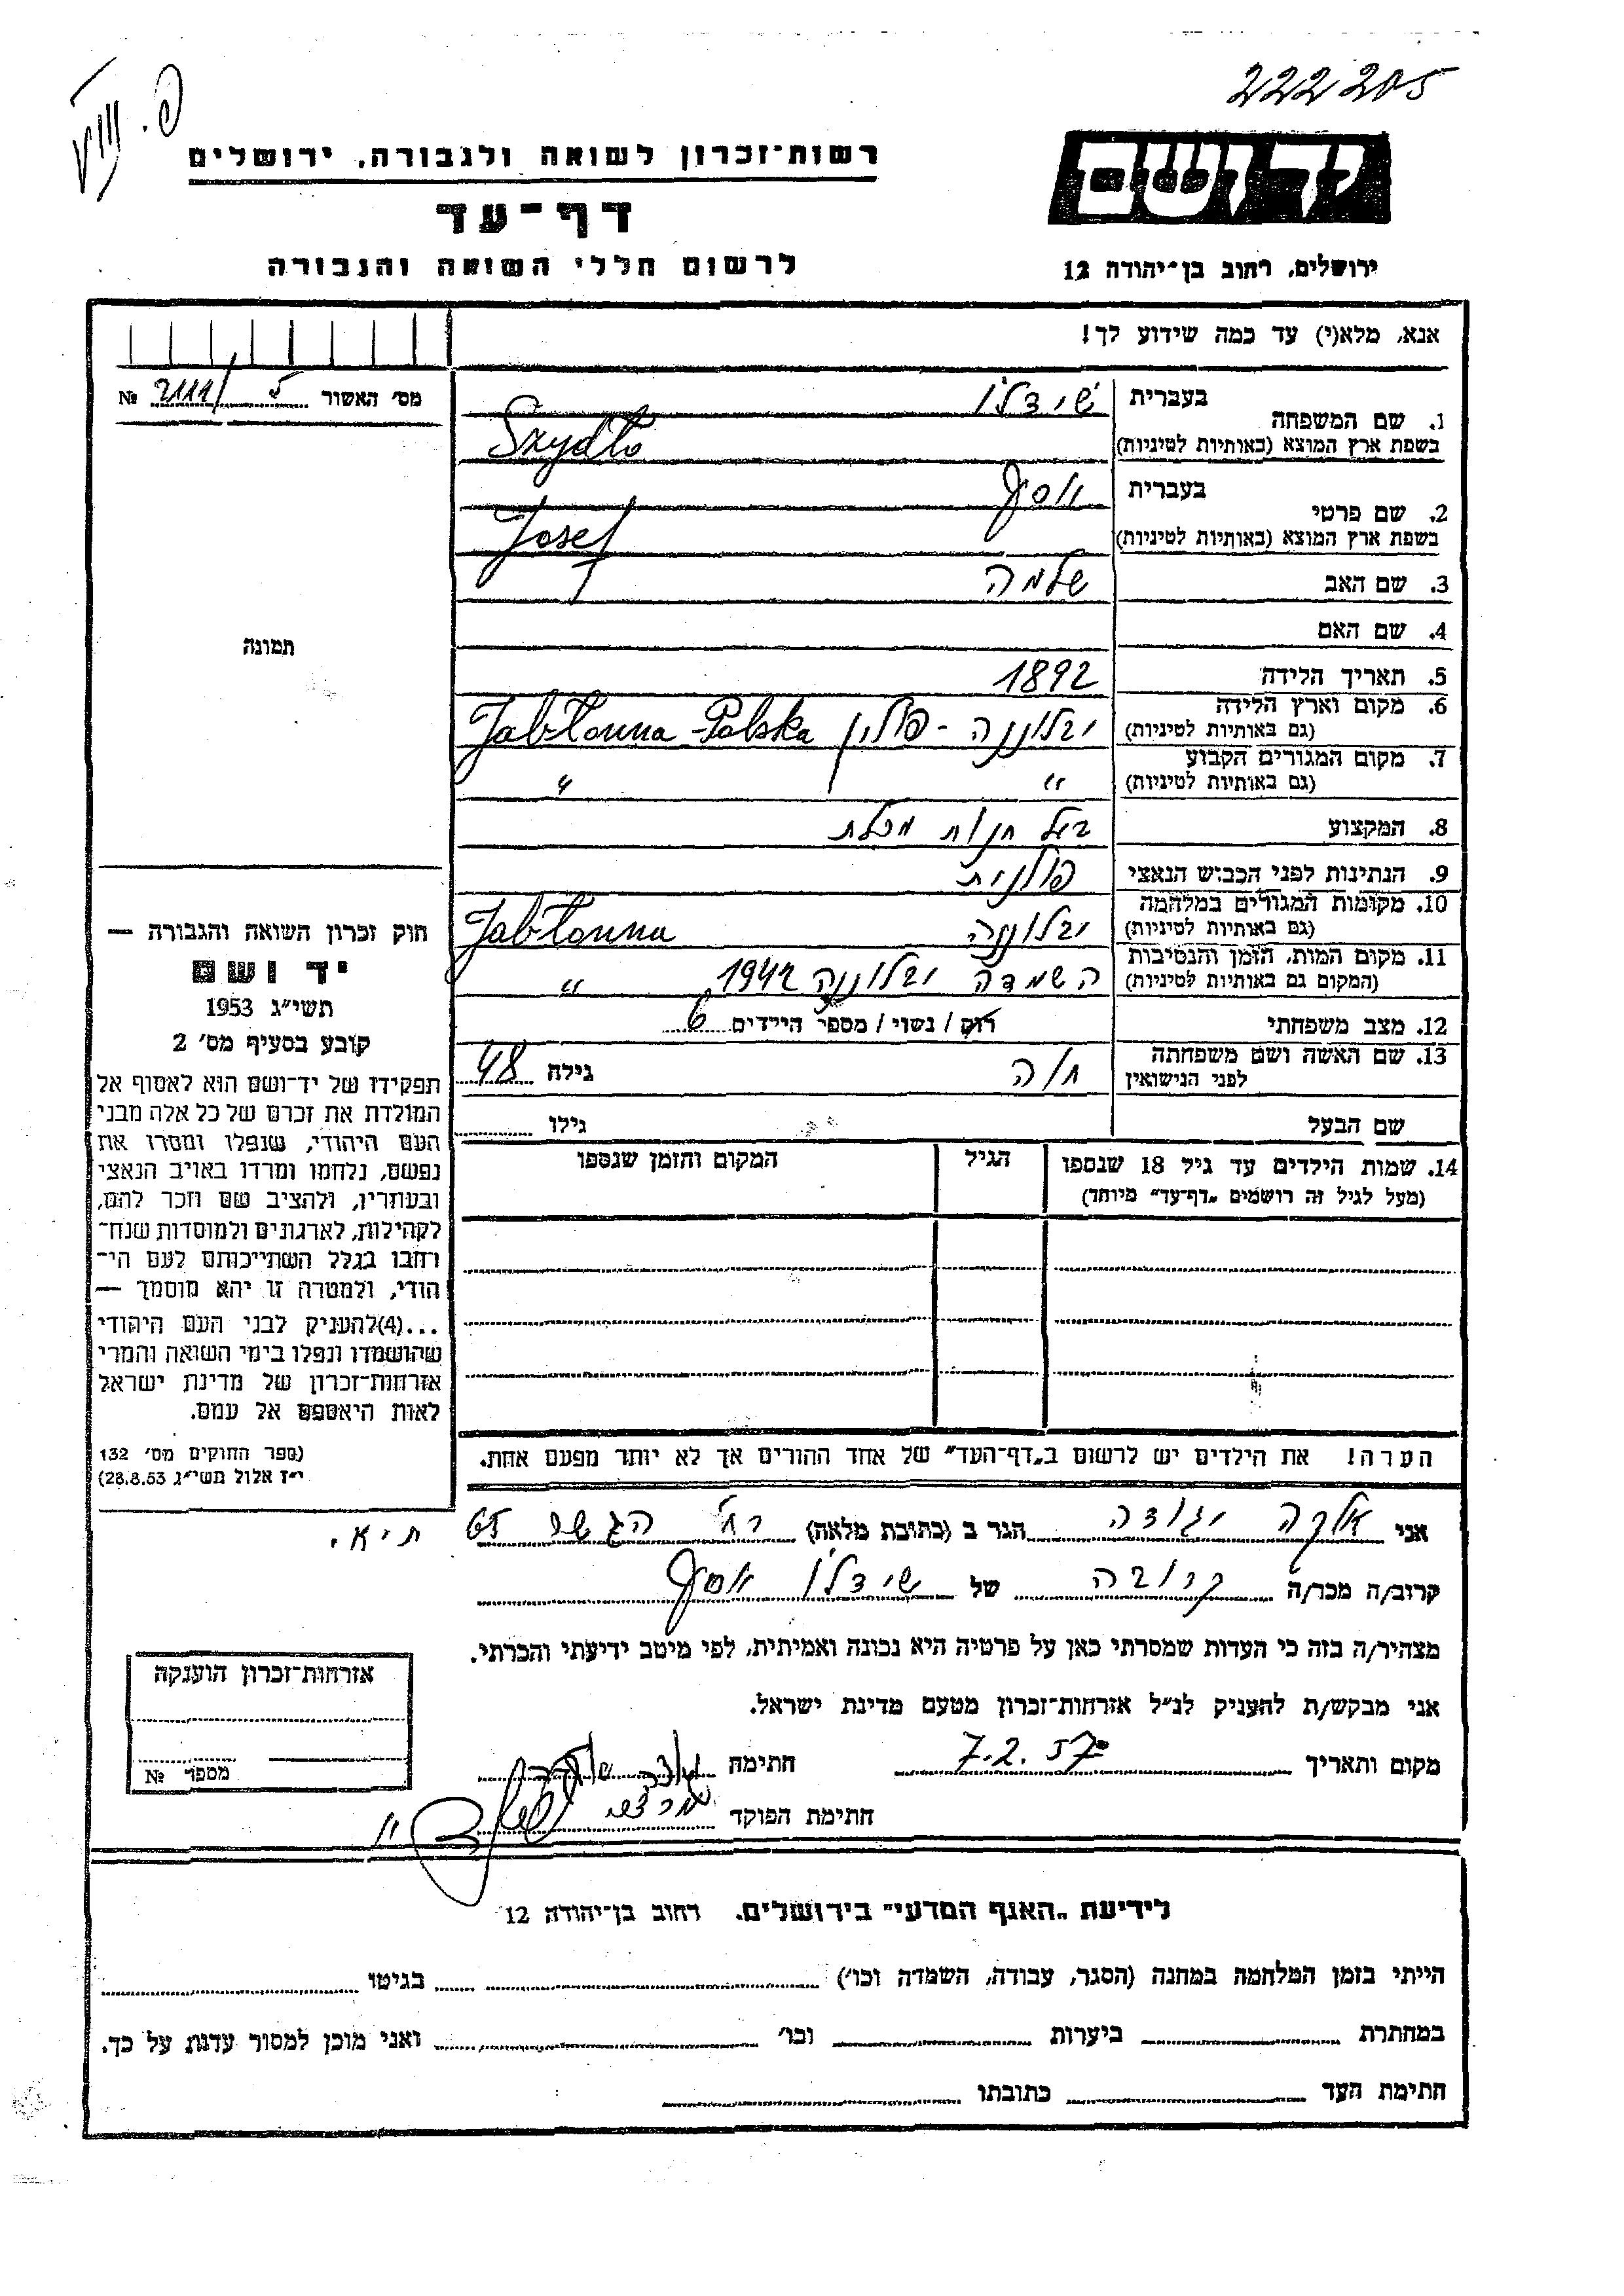 222205
רשות־זכרון לשואה ולגבורה, ירושלים
יד ושם
דף־עד
לרשום חללי השואה והגבורה
ירושלים, רחוב בן־יהודה 12
אנא, מלא(י) עד כמה שידוע לך!
מס׳ האשור 5 / 2111 №
1. שם המשפחה בעברית שידלו
בשפת ארץ המוצא (באותיות לטיניות) Szydło
2. שם פרטי בעברית יוסף
בשפת ארץ המוצא (באותיות לטיניות) Josef
3. שם האב שלמה
4. שם האם
תמונה
5. תאריך הלידה 1892
6. מקום וארץ הלידה
(גם באותיות לטיניות) יבלונה - פולין Jabłonna Polska
7. מקום המגורים הקבוע
(גם באותיות לטיניות) " "
8. המקצוע בעל חנות מכלת
9. הנתינות לפני הכבוש הנאצי פולנית
10. מקומות המגורים במלחמה
(גם באותיות לטיניות) יבלונה Jabłonna
11. מקום המות, הזמן והנסיבות
(המקום גם באותיות לטיניות) השמדה יבלונה 1942 "
12. מצב משפחתי רוק / נשוי / מספר הילדים 6
13. שם האשה ושם משפחתה
לפני הנישואין חוה גילה 48
שם הבעל גילו
14. שמות הילדים עד גיל 18 שנספו הגיל המקום והזמן שנספו
(מעל לגיל זה רושמים „דף־עד” מיוחד)
הערה! את הילדים יש לרשום ב„דף־העד” של אחד ההורים אך לא יותר מפעם אחת.
חוק זכרון השואה והגבורה —
יד ושם
תשי״ג 1953
קובע בסעיף מס׳ 2
תפקידו של יד־ושם הוא לאסוף אל
המולדת את זכרם של כל אלה מבני
העם היהודי, שנפלו ומסרו את
נפשם, נלחמו ומרדו באויב הנאצי
ובעוזריו, ולהציב שם וזכר להם,
לקהילות, לארגונים ולמוסדות שנח־
רחבו בגלל השתייכותם לעם הי־
הודי, ולמטרה זו יהא מוסמך —
...(4)להעניק לבני העם היהודי
שהושמדו ונפלו בימי השואה והמרי
אזרחות־זכרון של מדינת ישראל
לאות היאספם אל עמם.
(ספר החוקים מס׳ 132
י״ז אלול תשי״ג 28.8.53)
אני אלקה יהודה הגר ב (כתובת מלאה) רח׳ הגשר 65 ת״א.
קרוב/ה מכר/ה קרובה של שידלו יוסף
מצהיר/ה בזה כי העדות שמסרתי כאן על פרטיה היא נכונה ואמיתית, לפי מיטב ידיעתי והכרתי.
אני מבקש/ת להעניק לנ״ל אזרחות־זכרון מטעם מדינת ישראל.
מקום ותאריך 7.2.57 חתימה
חתימת הפוקד
אזרחות־זכרון הוענקה
מספר №
לידיעת „האגף המדעי” בירושלים, רחוב בן־יהודה 12
הייתי בזמן המלחמה במחנה (הסגר, עבודה, השמדה וכו׳) בגיטו
במחתרת ביערות וכו׳ ואני מוכן למסור עדות על כך.
חתימת העד כתובתו